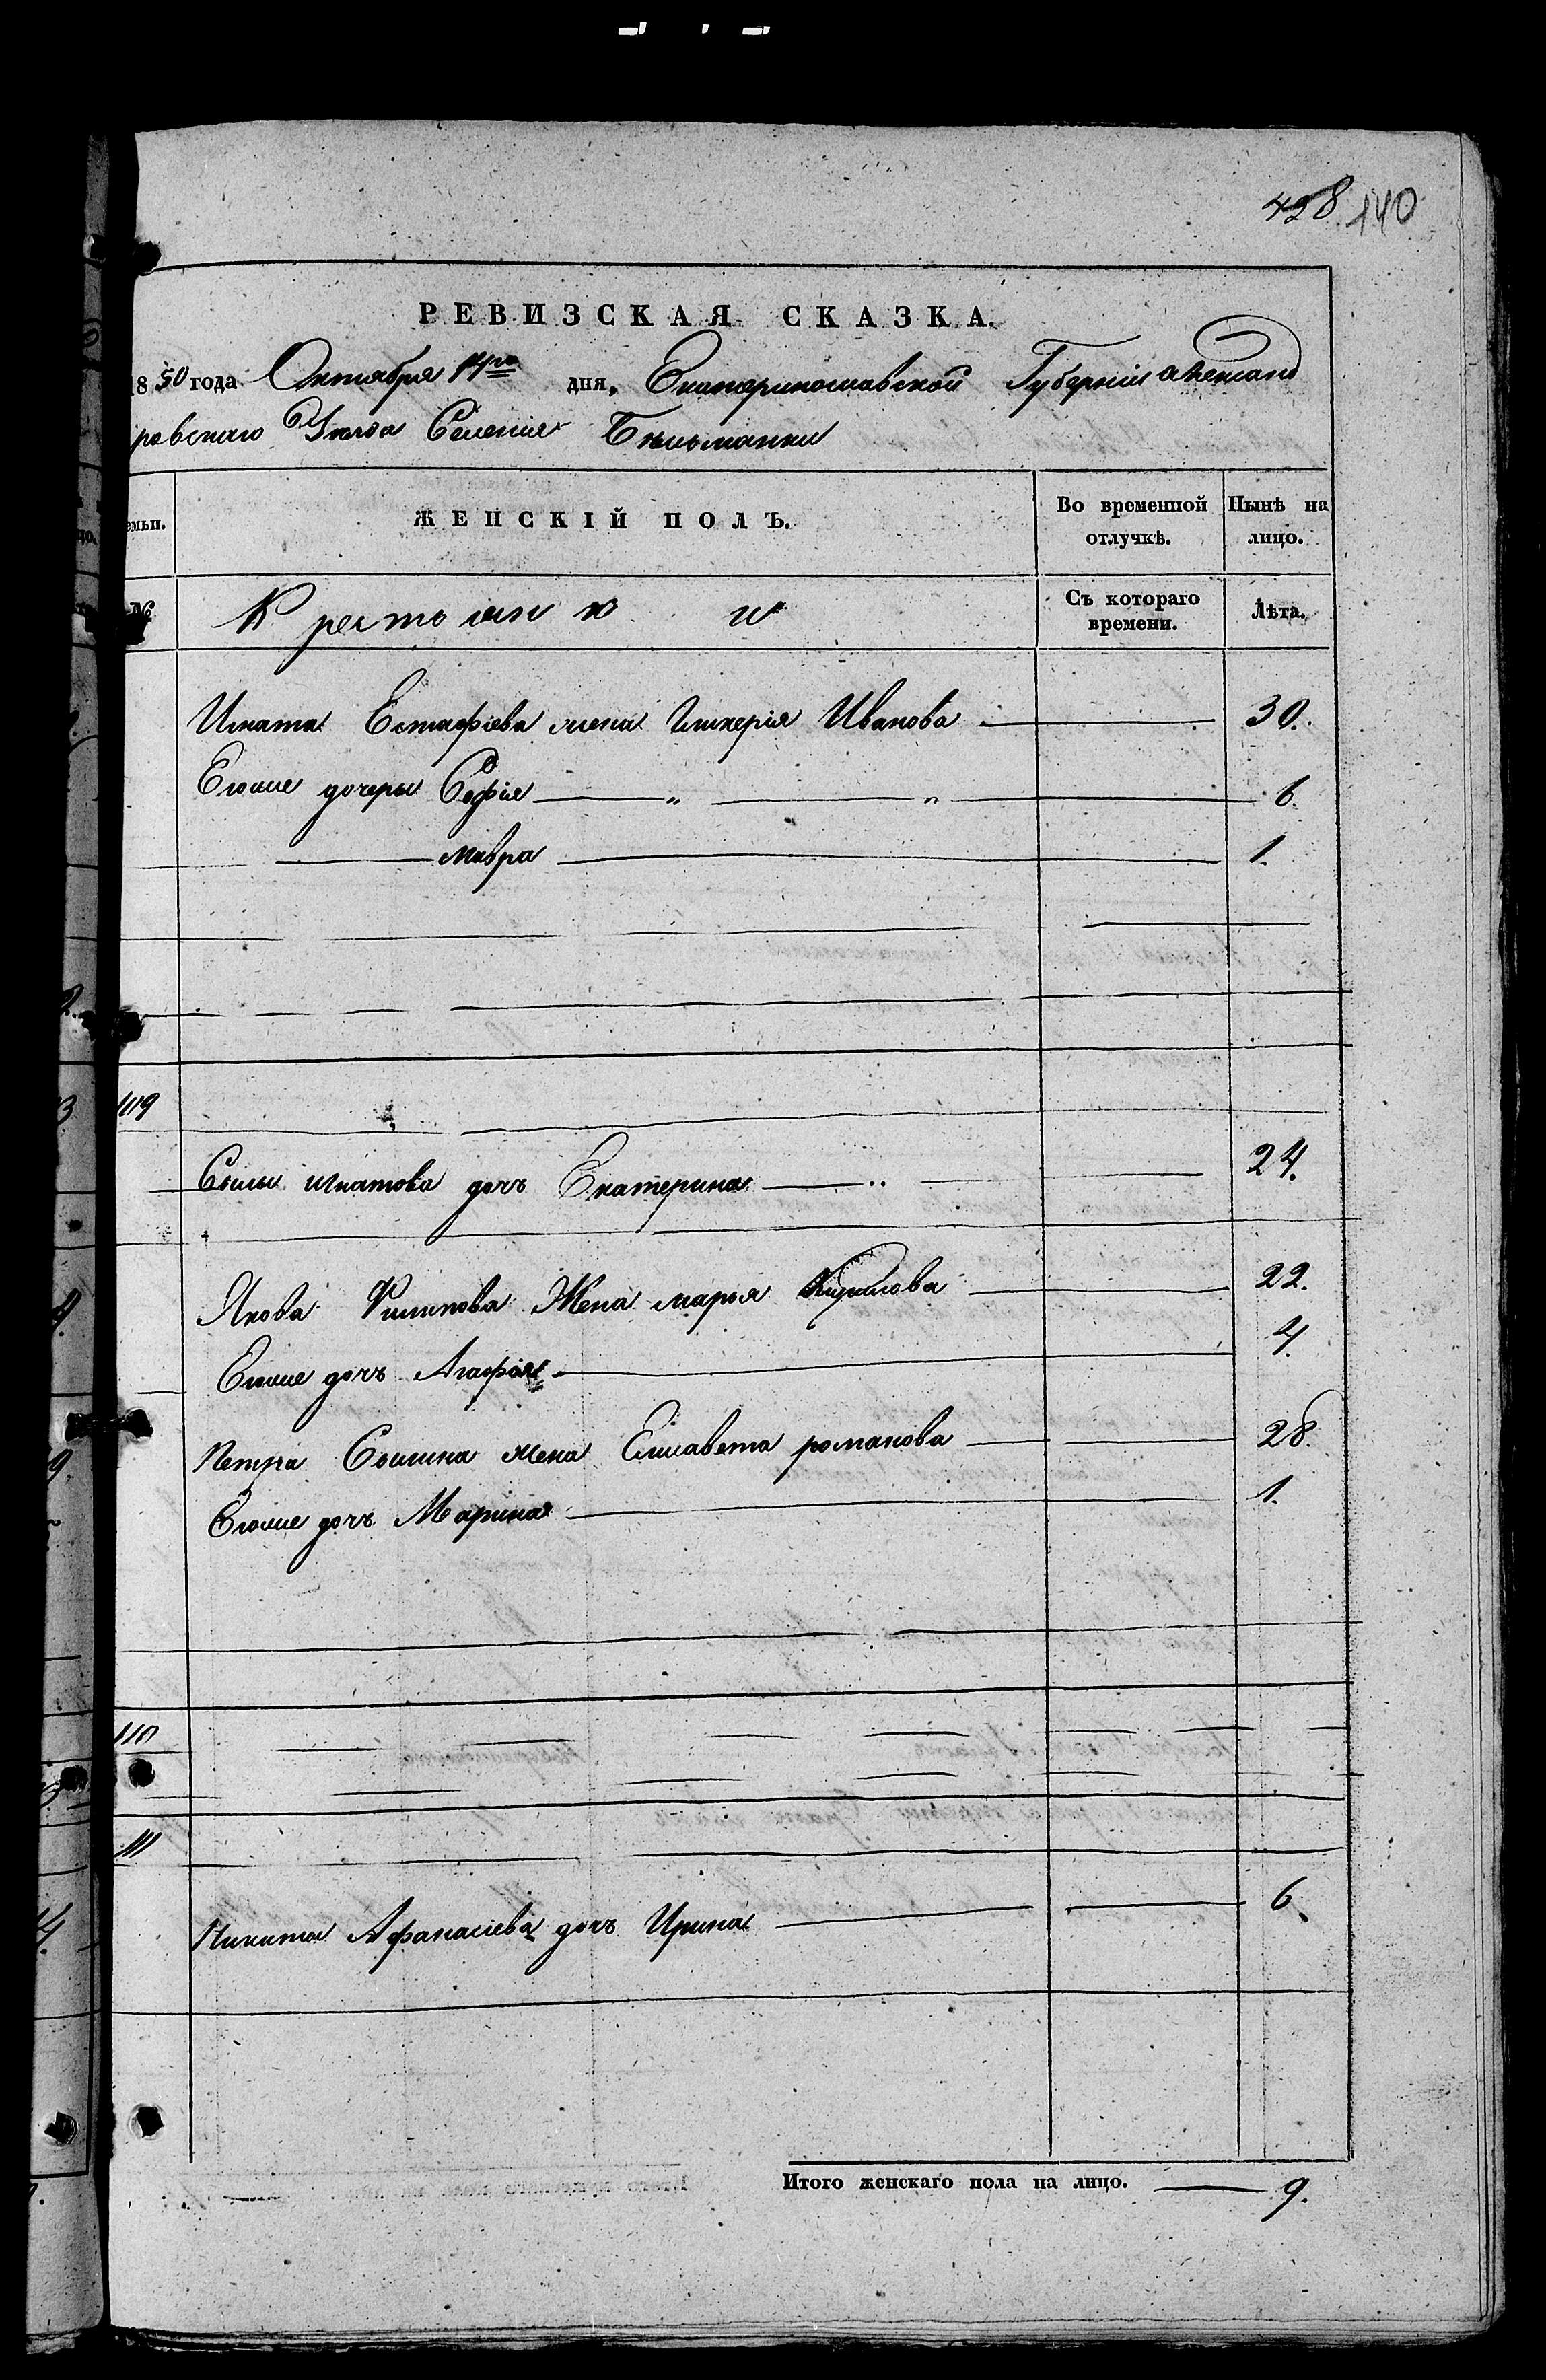 428 140
РЕВИЗСКАЯ СКАЗКА.
1850 года Октября 14го дня, Екатеринославской Губерніи Александ
ровскаго Уезда Селенія Бѣльманки
емьи.
ЖЕНСКІЙ ПОЛЪ.
Во временной отлучкѣ.
Нынѣ на лицо.
№
Крестьянк и
Съ котораго времени.
Лѣта.
Игната Естафіева жена Гликерія Иванова 30.
Егоже дочери Софія 6.
Мавра 1.
109
Сысы Игнатова дочь Екатерина 24.
Якова Филипова Жена марья Кирилова 22.
Егоже дочь Агафья 4.
Петра Сысина жена Елисавета романова 28.
Егоже дочь Марина 1.
110
111
Никиты Афанасіева дочь Ирина 6.
Итого женскаго пола на лицо. 9.